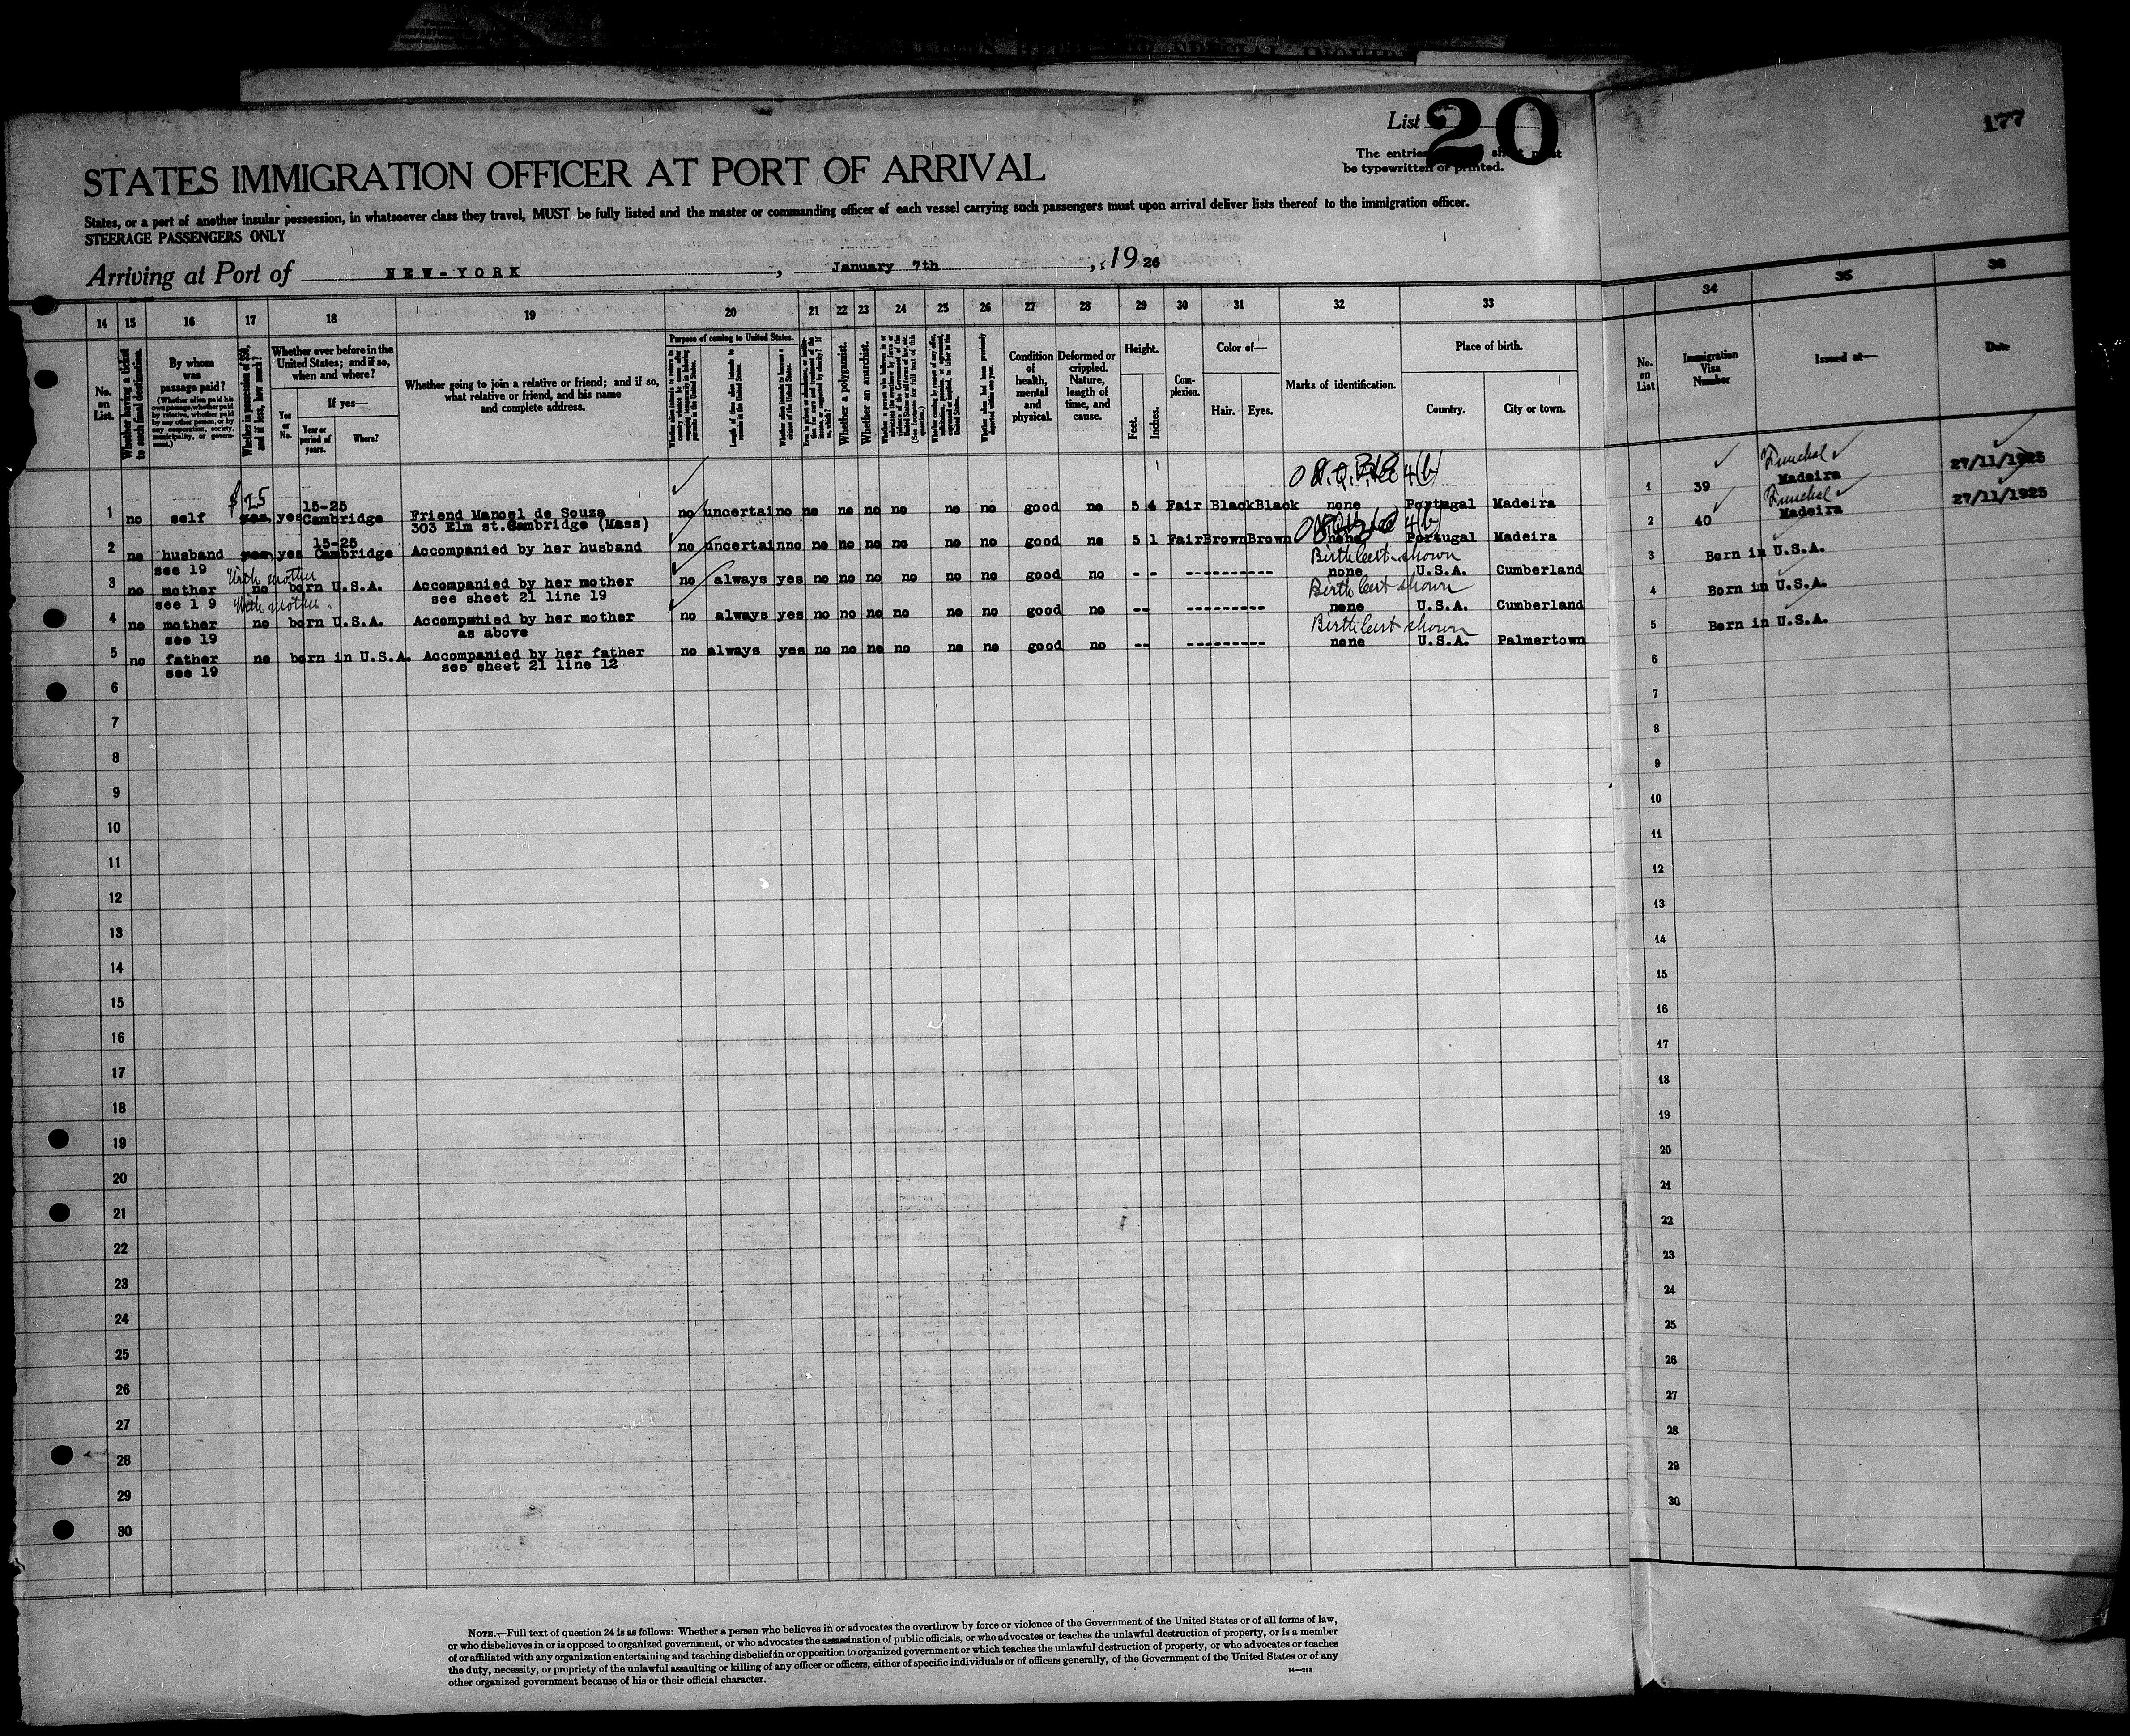 List 20
177
The entries
be typewritten or printed.
STATES IMMIGRATION OFFICER AT PORT OF ARRIVAL
States, or a port of another insular possession, in whatsoever class they travel, MUST be fully listed and the master or commanding officer of each vessel carrying such passengers must upon arrival deliver lists thereof to the immigration officer.
STEERAGE PASSENGERS ONLY
Arriving at Port of NEW-YORK, January 7th, 1926
14 15 16 17 18 19 20 21 22 23 24 25 26 27 28 29 30 31 32 33 34 35 36
No. on List.
Whether having a ticket to such final destination.
By whom was passage paid?
(Whether alien paid his own passage, whether paid by relative, whether paid by any other person, or by any corporation, society, municipality, or government.)
Whether in possession of $50, and if less, how much?
Whether ever before in the United States; and if so, when and where?
Yes or No.
If yes—
Year or period of years.
Where?
Whether going to join a relative or friend; and if so, what relative or friend, and his name and complete address.
Purpose of coming to United States.
Length of time alien intends to remain in the United States.
Whether a polygamist.
Whether an anarchist.
Condition of health, mental and physical.
Deformed or crippled. Nature, length of time, and cause.
Height.
Feet.
Inches.
Complexion.
Color of—
Hair.
Eyes.
Marks of identification.
Place of birth.
Country.
City or town.
No. on List
Immigration Visa Number
Issued at—
Date
$25
15-25
1 no self yes yes Cambridge Friend Manoel de Souza no uncertain no no no no no no no good no 5 4 Fair Black Black none Portugal Madeira
303 Elm st.Cambridge (Mass)
4(b)
1 39 Funchal Madeira 27/11/1925
15-25
2 no husband yes yes Cambridge Accompanied by her husband no uncertain no no no no no no no good no 5 1 Fair Brown Brown none Portugal Madeira
see 19
4(b)
2 40 Funchal Madeira 27/11/1925
With mother
Birth Cert. shown
3 no mother no born U.S.A. Accompanied by her mother no always yes no no no no no no good no - - ---------- none U.S.A. Cumberland
see 1 9 see sheet 21 line 19
3 Born in U.S.A.
With mother
Birth Cert shown
4 no mother no born U.S.A. Accompanied by her mother no always yes no no no no no no good no -- --------- none U.S.A. Cumberland
see 19 as above
4 Born in U.S.A.
Birth Cert shown
5 no father no born in U.S.A. Accompanied by her father no always yes no no no no no no good no -- --------- none U.S.A. Palmertown
see 19 see sheet 21 line 12
5 Born in U.S.A.
6 6
7 7
8 8
9 9
10 10
11 11
12 12
13 13
14 14
15 15
16 16
17 17
18 18
19 19
20 20
21 21
22 22
23 23
24 24
25 25
26 26
27 27
28 28
29 29
30 30
NOTE.—Full text of question 24 is as follows: Whether a person who believes in or advocates the overthrow by force or violence of the Government of the United States or of all forms of law,
or who disbelieves in or is opposed to organized government, or who advocates the assassination of public officials, or who advocates or teaches the unlawful destruction of property, or is a member
of or affiliated with any organization entertaining and teaching disbelief in or opposition to organized government or which teaches the unlawful destruction of property, or who advocates or teaches
the duty, necessity, or propriety of the unlawful assaulting or killing of any officer or officers, either of specific individuals or of officers generally, of the Government of the United States or of any
other organized government because of his or their official character.
14—213